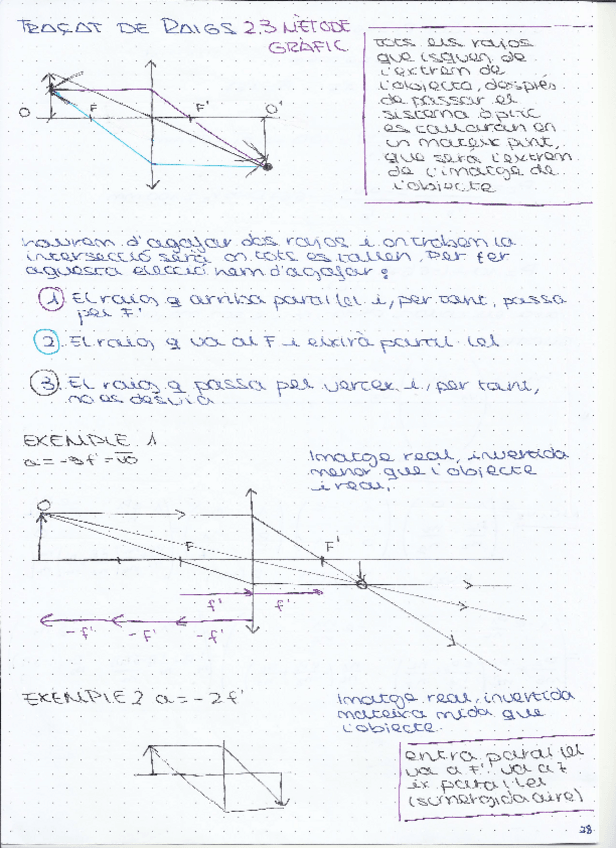 TRAÇAT DE RAIGS 2.3 MÈTODE
GRÀFIC
Tots els rajos
que isquen de
l'extrem de
l'objecte, després
de passar el
sistema òptic
es tallaran en
un mateix punt,
que serà l'extrem
de l'imatge de
l'objecte
O F F' O'
Haurem d'agafar dos rajos i on troben la
intersecció serà on tots es tallen. Per fer
aquesta elecció hem d'agafar:
1 El raig q arriba paral·lel i, per tant, passa
pel F'
2 El raig q va al F i eixirà paral·lel
3 El raig q passa pel vertex i, per tant,
no es desvia
EXEMPLE 1
a = -3f' = VO
Imatge real, invertida
menor que l'objecte
i real.
O F F'
f' f'
-f' -f' -f'
EXEMPLE 2 a = -2f'
Imatge real, invertida
mateixa mida que
l'objecte.
entra paral·lel
va a F' va a F
ix paral·lel
(sumergida aire)
28